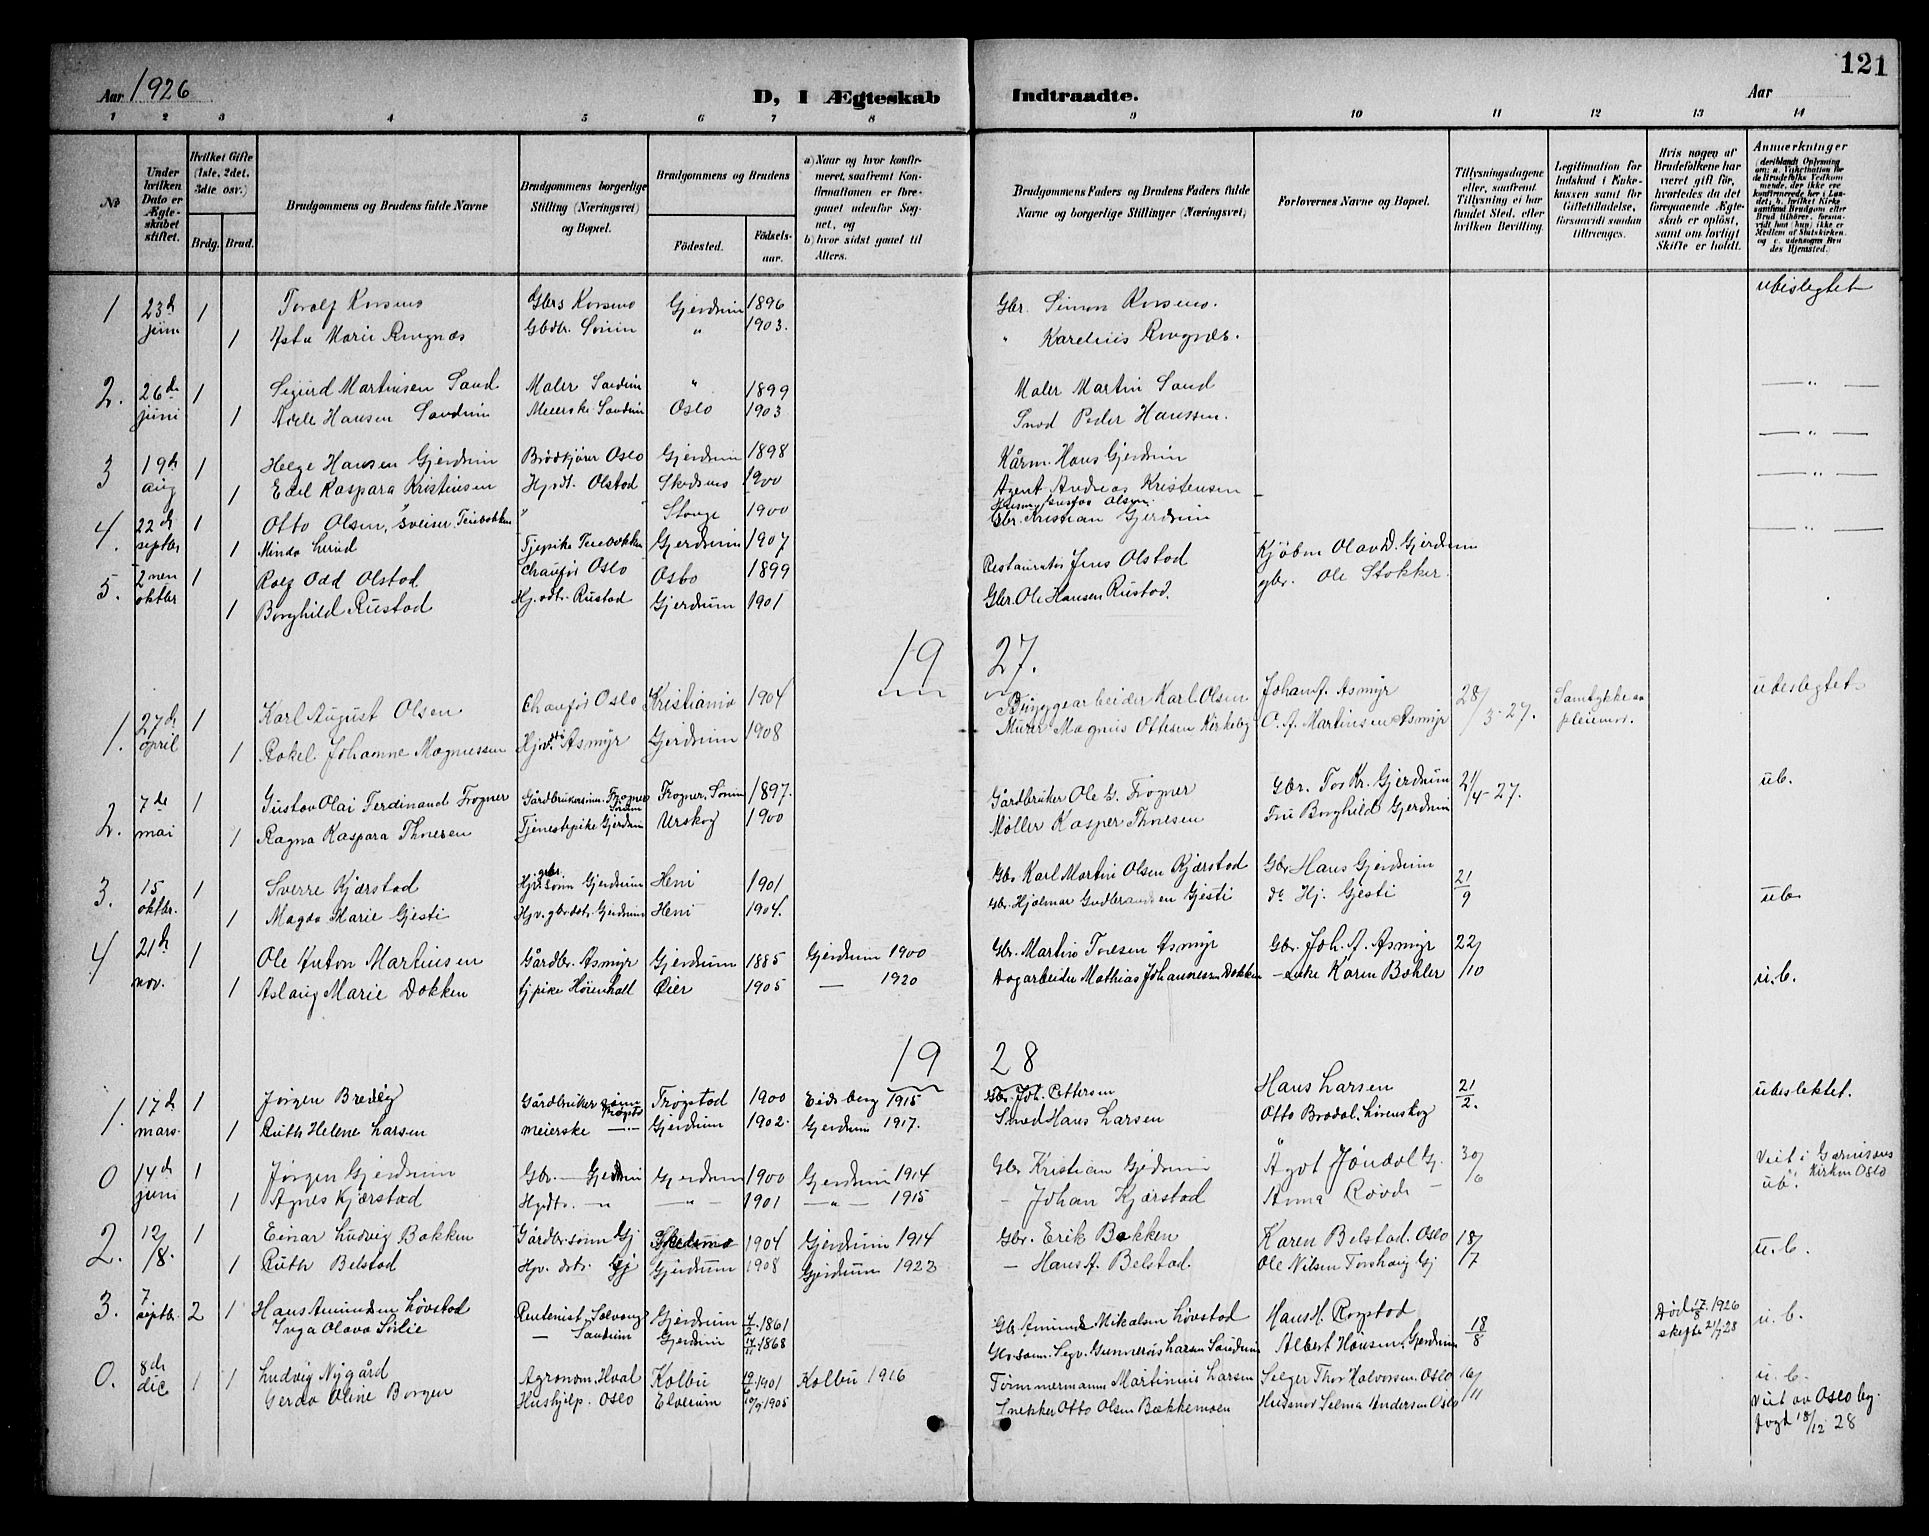 121
Aar 1926
D, I Ægteskab Indtraadte.
Aar
1 2 3 4 5 6 7 8 9 10 11 12 13 14
No
Under hvilken Dato er Ægteskabet stiftet.
Hvilket Gifte (1ste, 2det, 3die osv.)
Brdg. Brud.
Brudgommens og Brudens fulde Navne
Brudgommens borgerlige Stilling (Næringsvei) og Bopæl.
Brudgommens og Brudens
Fødested. Fødselsaar.
a) Naar og hvor konfirmeret, saafremt Konfirmationen er foregaaet udenfor Sognet, og
b) hvor sidst gaaet til Alters.
Brudgommens Faders og Brudens Faders fulde Navne og borgerlige Stillinger (Næringsvei)
Forlovernes Navne og Bopæl.
Tillysningsdagene eller, saafremt Tillysning ei har fundet Sted, efter hvilken Bevilling.
Legitimation for Indskud i Enkekassen samt for Giftetilladelse, forsaavidt saadan tiltrænges.
Hvis nogen af Brudefolkene har været gift før, hvorledes da det foregaaende Ægteskab er opløst, samt om lovligt Skifte er holdt.
Anmerkninger
1 23de juni 1 Toralf Korsmo Gbrs Korsmo Gjerdrum 1896 Gbr. Simon Korsmo. ubeslegtet
1 Asta Marie Ringnæs Gbdtr. 〃 1903. 〃 Karelius Ringnæs.
2. 26de juni 1 Sigurd Martinsen Sand Maler 〃 1899 Maler Martin Sand — 〃 —
1 Adele Hansen Meierske Oslo 1903 Smed Peder Hanssen.
3 19de aug 1 Helge Hansen Gjerdrum Brødkjører Oslo Gjerdrum 1898 Hans Gjerdrum — 〃 —
1 Edel Kaspara Kristinsen Hjvdt. Olstad Skedsmo 1900 Agent Andreas Kristensen — 〃 —
4. 22de septbr 1 Otto Olsen, sveiser Teiebakken 〃 Stange 1900 Gustav Olsen.
Gbr. Kristian Gjerdrum
1 Minda Lerud Tjepike Teiebakken Gjerdrum 1907 — 〃 —
5. 2nen oktbr 1 Rolf Odd Olstad Chaufør Oslo Oslo 1899 Restauratør Jens Olstad Kjøbm Olav D. Gjerdrum
1 Borghild Rustad Hj.vdtr. Rustad Gjerdrum 1901 Gbr. Ole Hansen Rustad. gbr. Ole Stokker.
1927.
1. 27de april 1 Karl August Olsen Chaufør Oslo Kristiania 1904 Byggearbeider Karl Olsen Johan A. Asmyr 28/3-27. Samtykke av pleiemor. ubeslegtet
1 Rakel Johanne Magnussen Hjv.dt. Asmyr Gjerdrum 1908 Murer Magnus Ottesen Kirkeby O. A. Martinsen Asmyr
2. 7de mai 1 Gustav Olai Ferdinand Frogner Gårdbrukersønn. Frogner Sørum Frogner, Sørum 1897. Gårdbruker Ole G. Frogner Gbr. Tor Kr. Gjerdrum 21/4-27. ub.
1 Ragna Kaspara Thoresen Tjenestepike Gjerdrum Urskog 1900 Møller Kasper Thoresen Fru Borghild Gjerdrum
3. 15 oktbr. 1 Sverre Kjærstad Hjv. gbr. sønn Gjerdrum Heni 1901 Gbr Karl Martin Olsen Kjærstad Gbr Hans Gjerdrum 21/9 ub
1 Magda Marie Gjesti Hjv. gbrdtr. Gjerdrum Heni 1904. Gbr. Hjalmar Gudbrandsen Gjesti do Hj. Gjesti
4 21de nov. 1 Ole Anton Martinsen Gårdbr. Asmyr Gjerdrum 1885 Gjerdrum 1900 Gbr. Martin Toresen Asmyr Gbr. Joh. A. Asmyr 22/10 u.b.
1 Aslaug Marie Dokken tjpike Hørenhall Øier 1905 — 1920 Dagarbeider Mathias Johannessen Dokken — Enke Karen Bøhler
1928
1. 17de mars. 1 Jørgen Bredlig Gårdbruker sønn Trøgst. Trøgstad 1900 Eidsberg 1915 Gbr. Joh. Ottersen Hans Larsen 21/2. ubeslektet.
1 Ruth Helene Larsen meierske — 〃 — Gjerdrum 1902. Gjerdrum 1917. Smed Hans Larsen Otto Brodal, Lørenskog
0 14de juni 1 Jørgen Gjerdrum Gbr. — Gjerdrum Gjerdrum 1900 Gjerdrum 1914 Gbr Kristian Gjerdrum Ågot Jøndal Gj. 30/6 Viet i Garnisons Kirken Oslo
ub.
1 Agnes Kjærstad Hjvdtr. — 〃 — 〃 — 1901 — 〃 — 1915 — Johan Kjærstad Anna Røvde —
2. 12/8. 1 Einar Ludvig Bakken Gårdbr. sønn Gj Skedsmo 1904 Gjerdrum 1914 Gbr. Erik Bakken Karen Belstad. Oslo 18/7 u.b.
1 Ruth Belstad Hjv. dtr. Gj Gjerdrum 1908 Gjerdrum 1923 — Hans A. Belstad. Ole Nilsen Torshaug Gj
3. 7 septbr. 2 1 Hans Amundsen Løvstad Rentenist, Solvang Gjerdrum 4/2 1861 Gbr Amund Mikalsen Løvstad Hans H. Rogstad 18/8 Død 17/8 1926 skifte 21/7 28 u.b.
Inga Olava Sørlie — Gjerdrum 1868 Gunnerius Larsen Albert Hansen, Gjerdrum
0. 8de dec 1 1 Ludvig Nygård Agronom, Hval Kolbu 19/6 1901 Kolbu 1916 Tømmermann Martinius Larsen Selger Thor Halvorsen. Oslo 16/11 u.b.
Gerda Oline Borgen Hushjelp. Oslo Elverum 10/9 1905 Snekker Otto Olsen Bækkemoen Husmor Selma Andersen Oslo Viet av Oslo by-
fogd 18/12 28